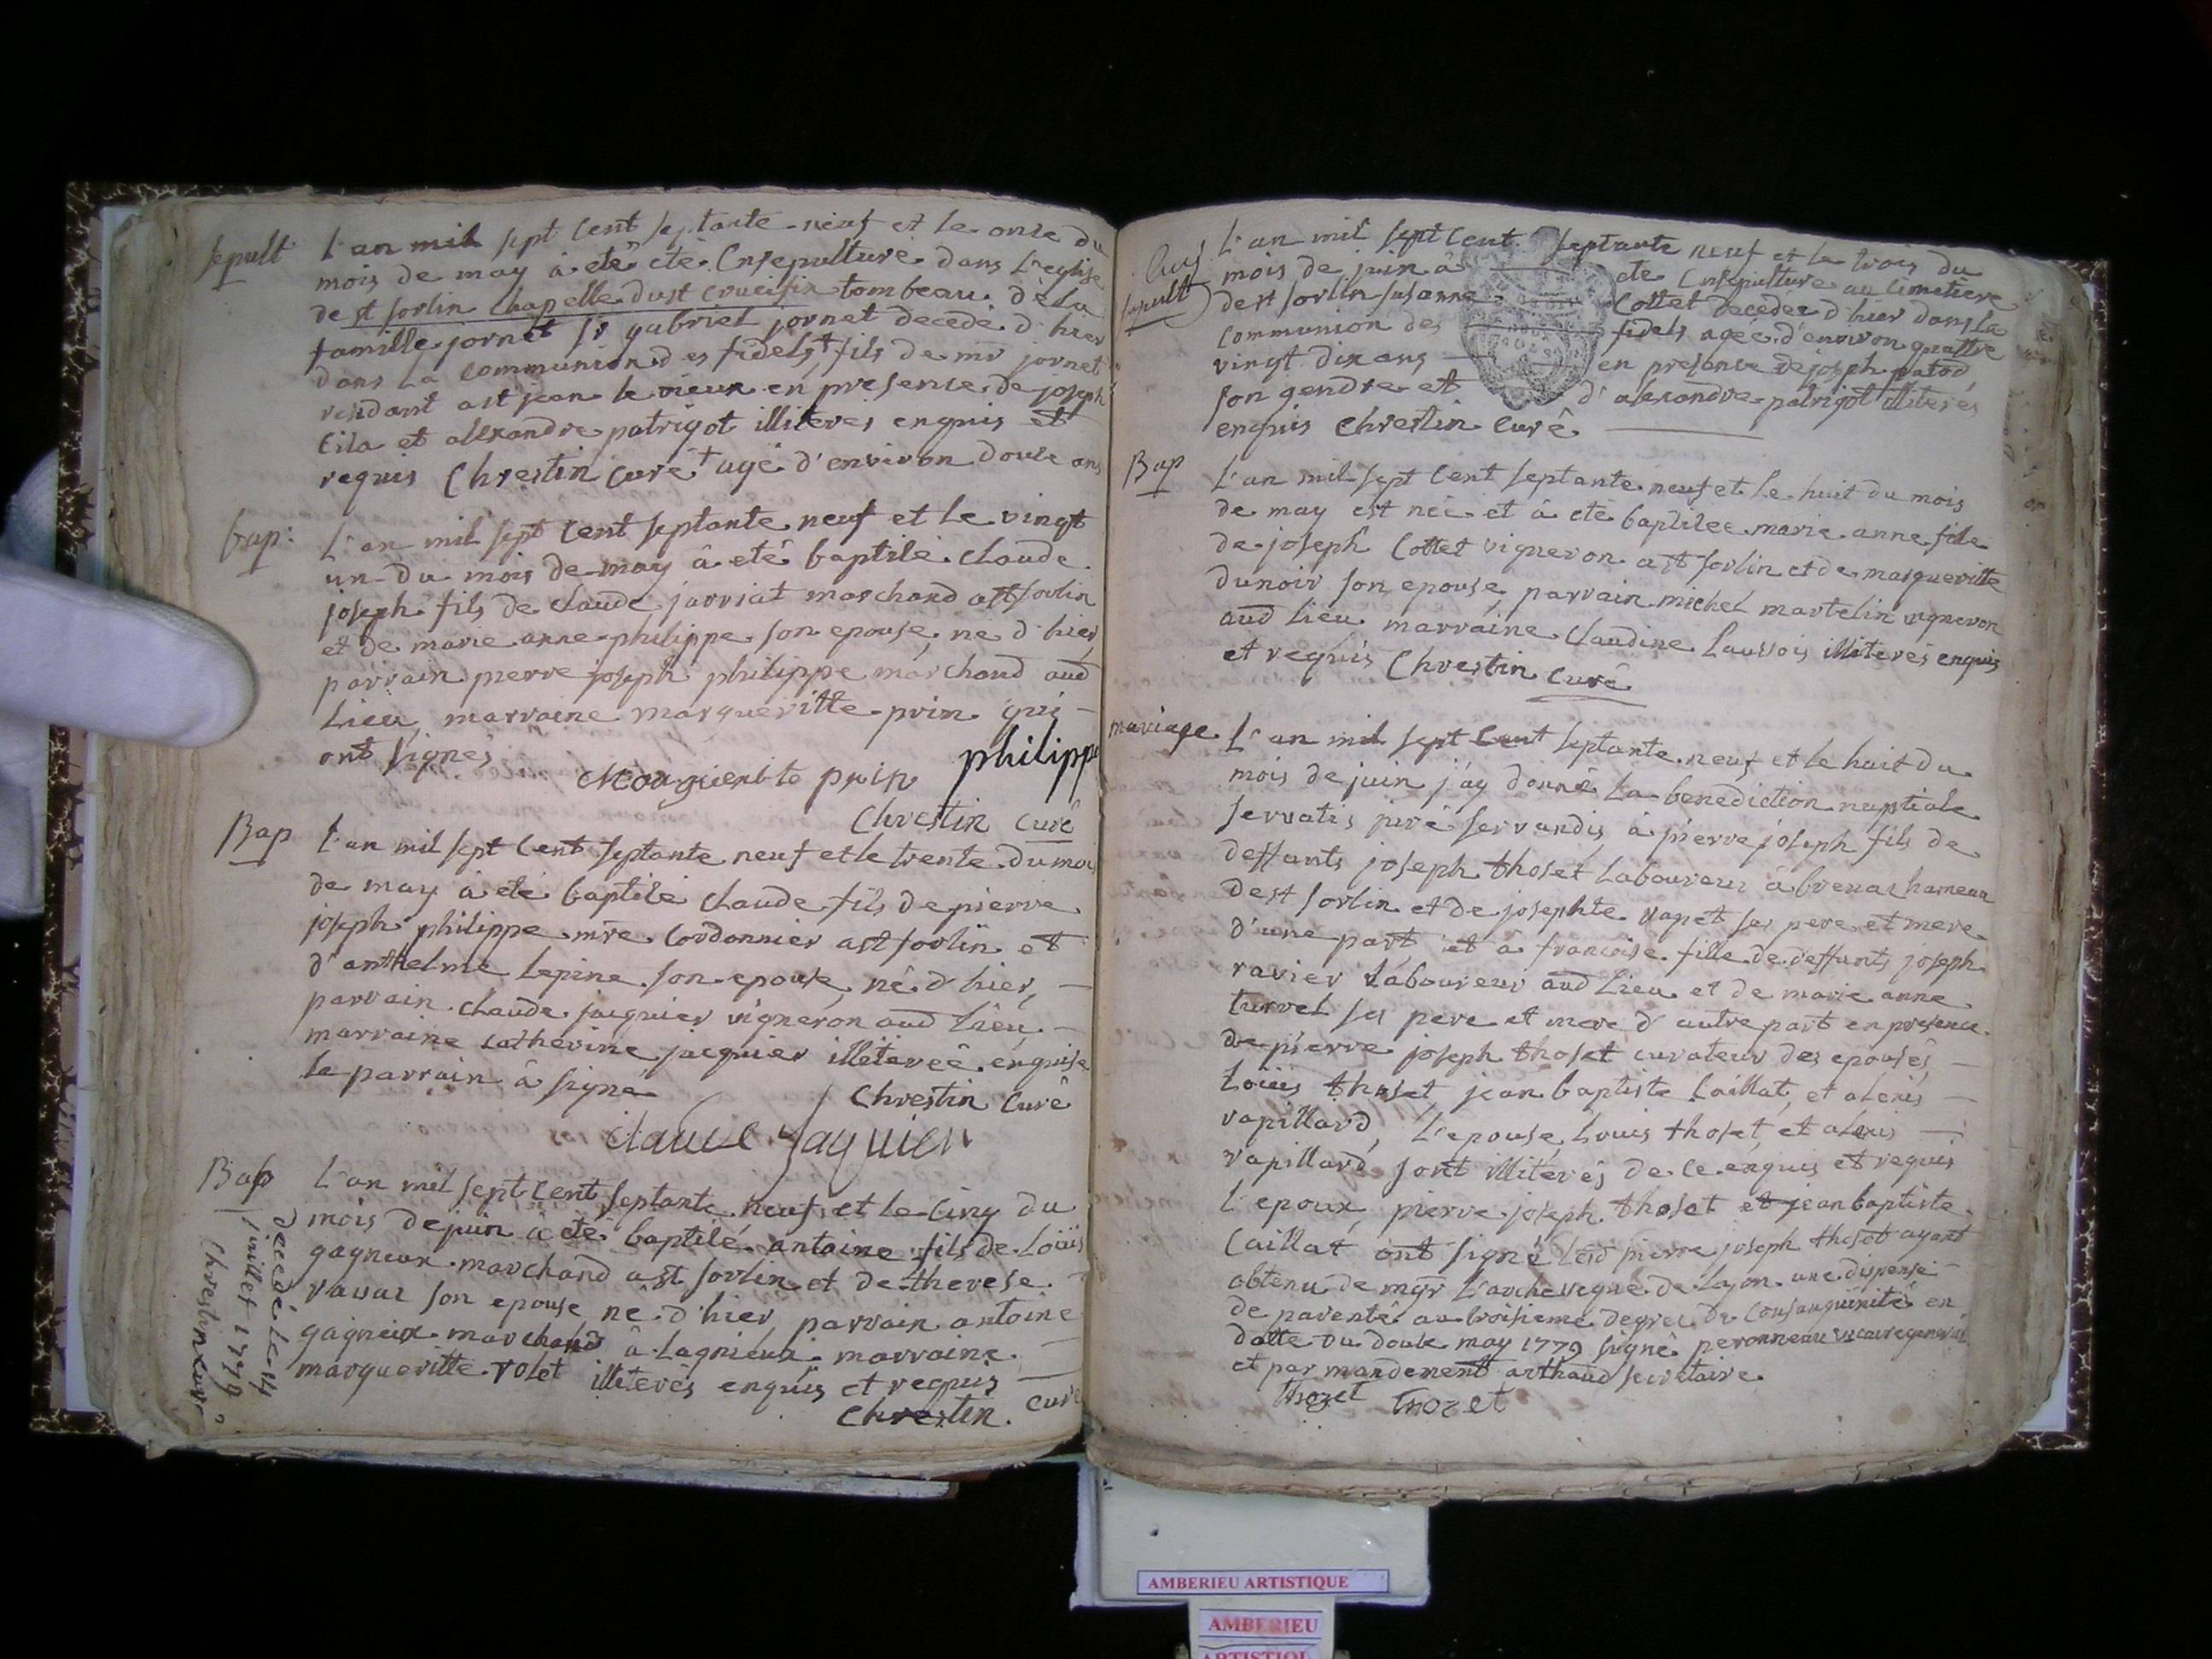 sepult
L'an mil sept cent septante-neuf et le onze du
mois de may à eté eté Ensepulturé dans L'eglise
de st sorlin Chapelle du st crucifix tombeau de La
famille jornet sr gabriel jornet decedé d'hier
dans La communion des fidels + fils de mr jornet
resident a st jean le vieux en presence de joseph
Cila et alexandre patrigot illiterés enquis et
requis Chrestin Curé + agé d'environ douze ans
bap:
L'an mil sept Cent septante neuf et Le vingt
un du mois de may à eté baptisé Claude
joseph fils de claude jarriat marchand a st sorlin
et de marie anne philippe son epouse, né d'hier
parrain pierre joseph philippe marchand aud
Lieu, marraine margueritte prin qui -
ont signes
Margueritte prin philippe
Chrestin curé
Bap
L'an mil sept Cent septante neuf et le trente du moi
de may à eté baptisé Claude fils de pierre
joseph philippe mre Cordonnier a st sorlin et
d'anthelme Lepine son epouse, né d'hier, -
parrain claude jaquier vigneron aud Lieu, -
marraine catherine jaquier illiterée enquise
le parrain à signé
Chrestin Curé
claude jaquier
Bap
decedé Le 14
juillet 1779
Chrestin curé
L'an mil sept Cent septante neuf et le Cinq du
mois de juin a eté baptisé antoine fils de Loüis
gagneux marchand a st sorlin et de therese -
ravaz son epouse né d'hier, parrain antoine
gagneux marchand à Lagnieux marraine -
margueritte rolet illiterés enquis et requis -
Chrestin. curé
sepult
L'an mil sept Cent septante neuf et le trois du
mois de juin à eté Ensepulturé au Cimetiere
de st sorlin susanne Cottet decedee d'hier dans la
Communion des fidels agée d'environ quattre
vingt dix ans - en presence de joseph patod
son gendre et d'alexandre patrigot illiterés
enquis Chrestin Curé
Bap
L'an mil sept Cent septante neuf et Le huit du mois
de may est née et à eté baptisée marie anne file
de joseph Cottet vigneron a st sorlin et de margueritte
dunoir son epouse parrain michel martelin vigneron
aud Lieu marraine Claudine Laussois illiterés enquis
et requis Chrestin Curé
mariage
L'an mil sept Cent septante neuf et le huit du
mois de juin j'ay donné La benediction nuptiale
servatis jure servandis, à pierre joseph fils de
deffunts joseph thoset Laboureur à brenaz hameau
de st sorlin et de josephte vapet ses pere et mere
d'une part et à francoise fille de deffunts joseph
ravier Laboureur aud Lieu et de marie anne
turrel ses pere et mere d'autre part en presence
de pierre joseph thoset curateur des epousés, -
Loüis thoset, jean baptiste Caillat, et alexis -
vapillard, L'epouse, Louis thoset, et alexis -
vapillard sont illiterés de ce enquis et requis
l'epoux, pierre joseph thoset et jean baptiste
Caillat ont signé Lesd pierre joseph thoset ayant
obtenu de mgr L'archeveque de Lyon une dispense
de parenté au troisieme degrez de Consanguinité en
datte du douze may 1779 signé peronneau vicaire general
et par mandement arthaud secretaire.
Thozet Thozet
AMBERIEU ARTISTIQUE
AMBERIEU
ARTISTIQU